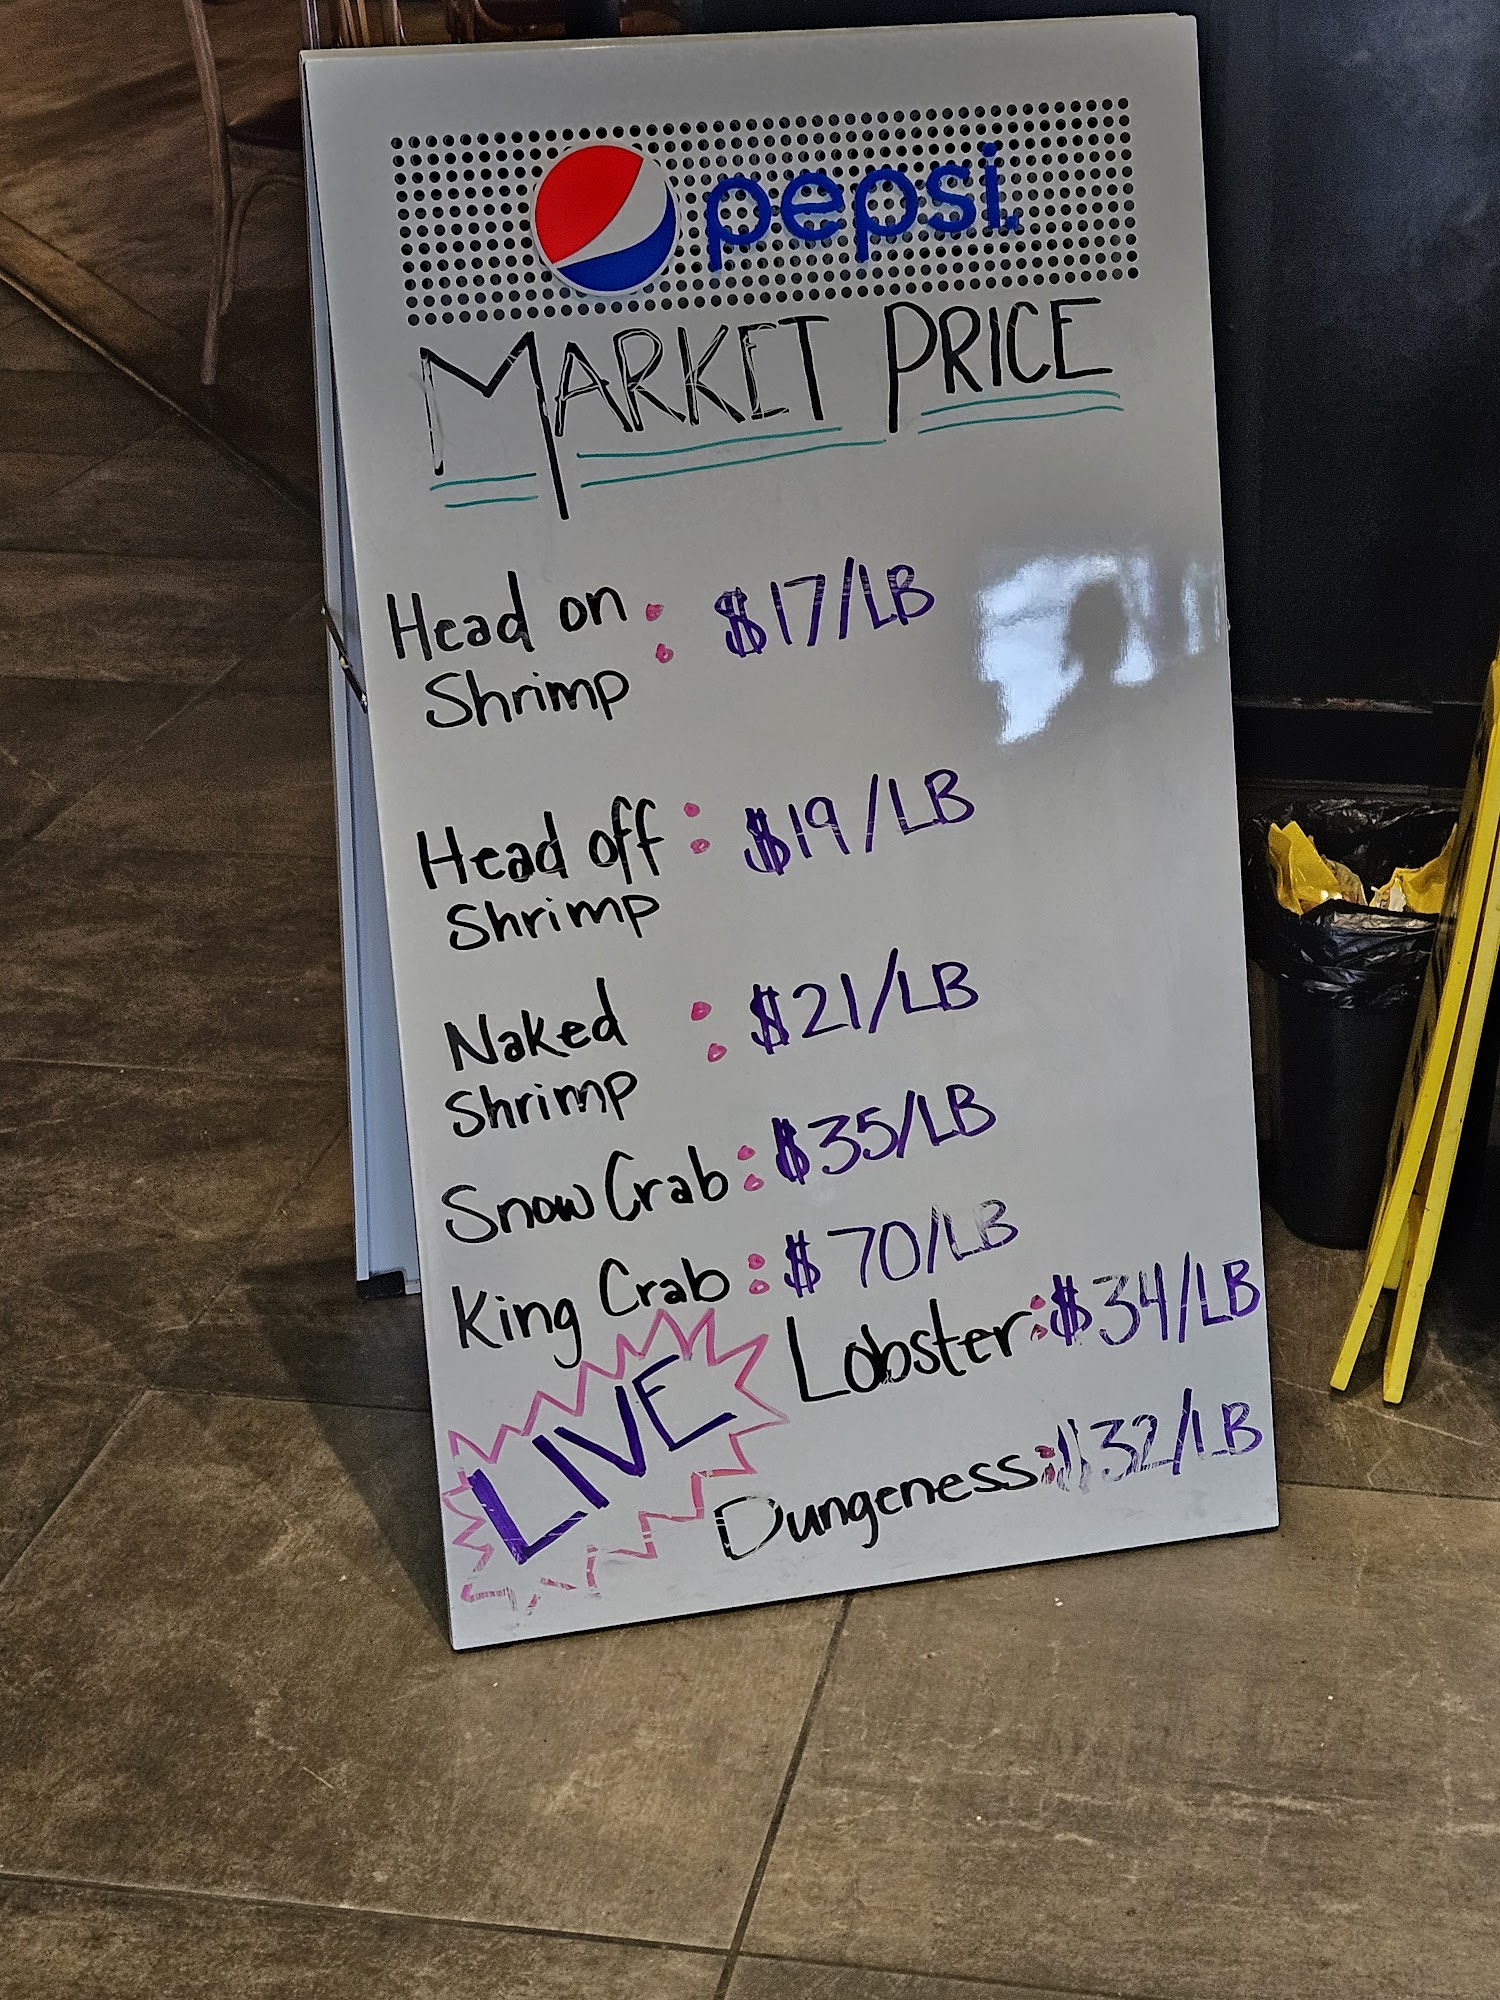 pepsi.
MARKET PRICE
Head on : $17/LB
Shrimp
Head off : $19/LB
Shrimp
Naked : $21/LB
Shrimp
Snow Crab : $35/LB
King Crab : $70/LB
LIVE
Lobster : $34/LB
Dungeness : $32/LB